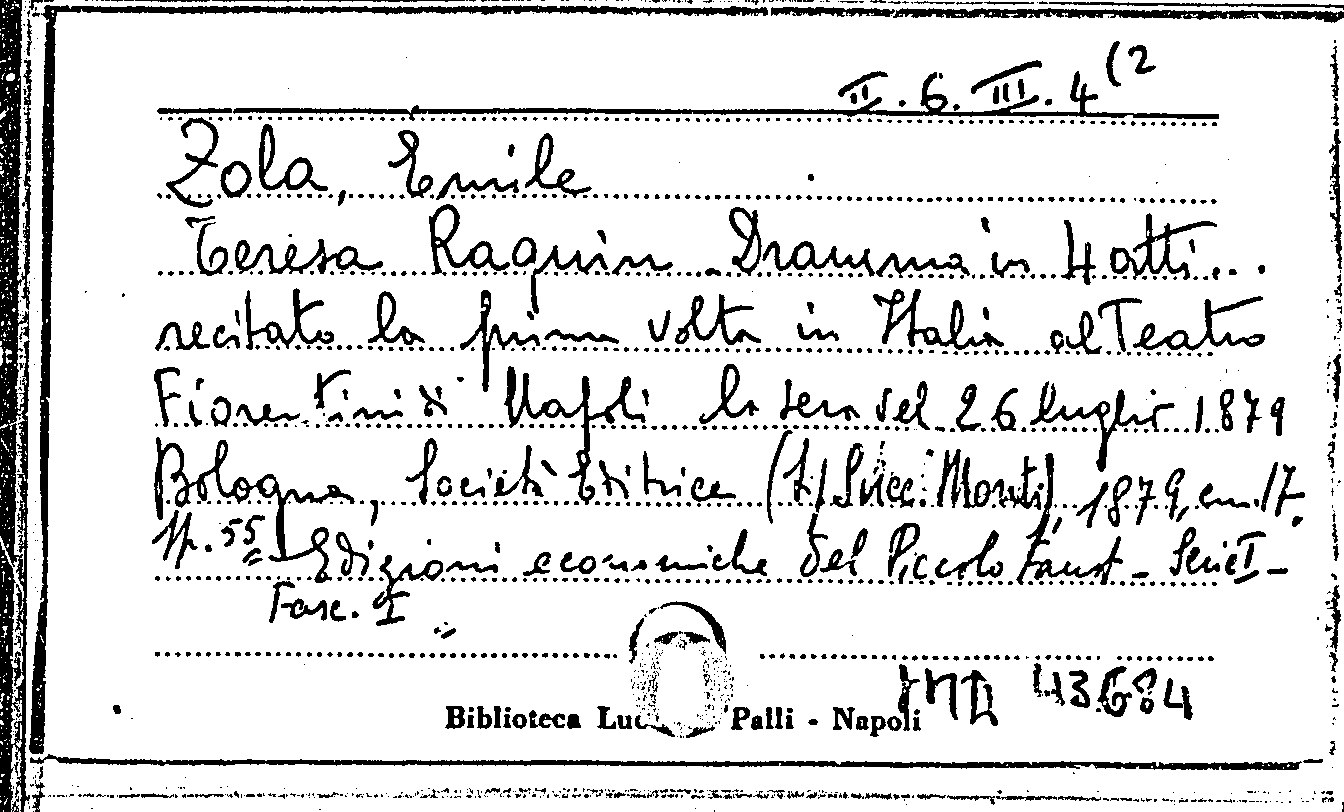 II.6.III.4(2
Zola, Emile
Teresa Raquin - Dramma in 4 atti...
recitato la prima volta in Italia al Teatro
Fiorentini di Napoli la sera del 26 luglio 1879
Bologna, Società Editrice (t. Succ. Monti), 1879, cm. 17.
pp. 55 = Edizioni economiche del Piccolo Faust - Serie I -
Fasc. I
43684
Biblioteca Palli - Napoli